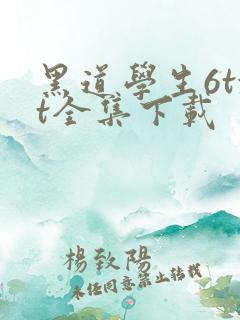 黑道學生6tx
t全集下載
楊致陽
未經同意禁止轉載